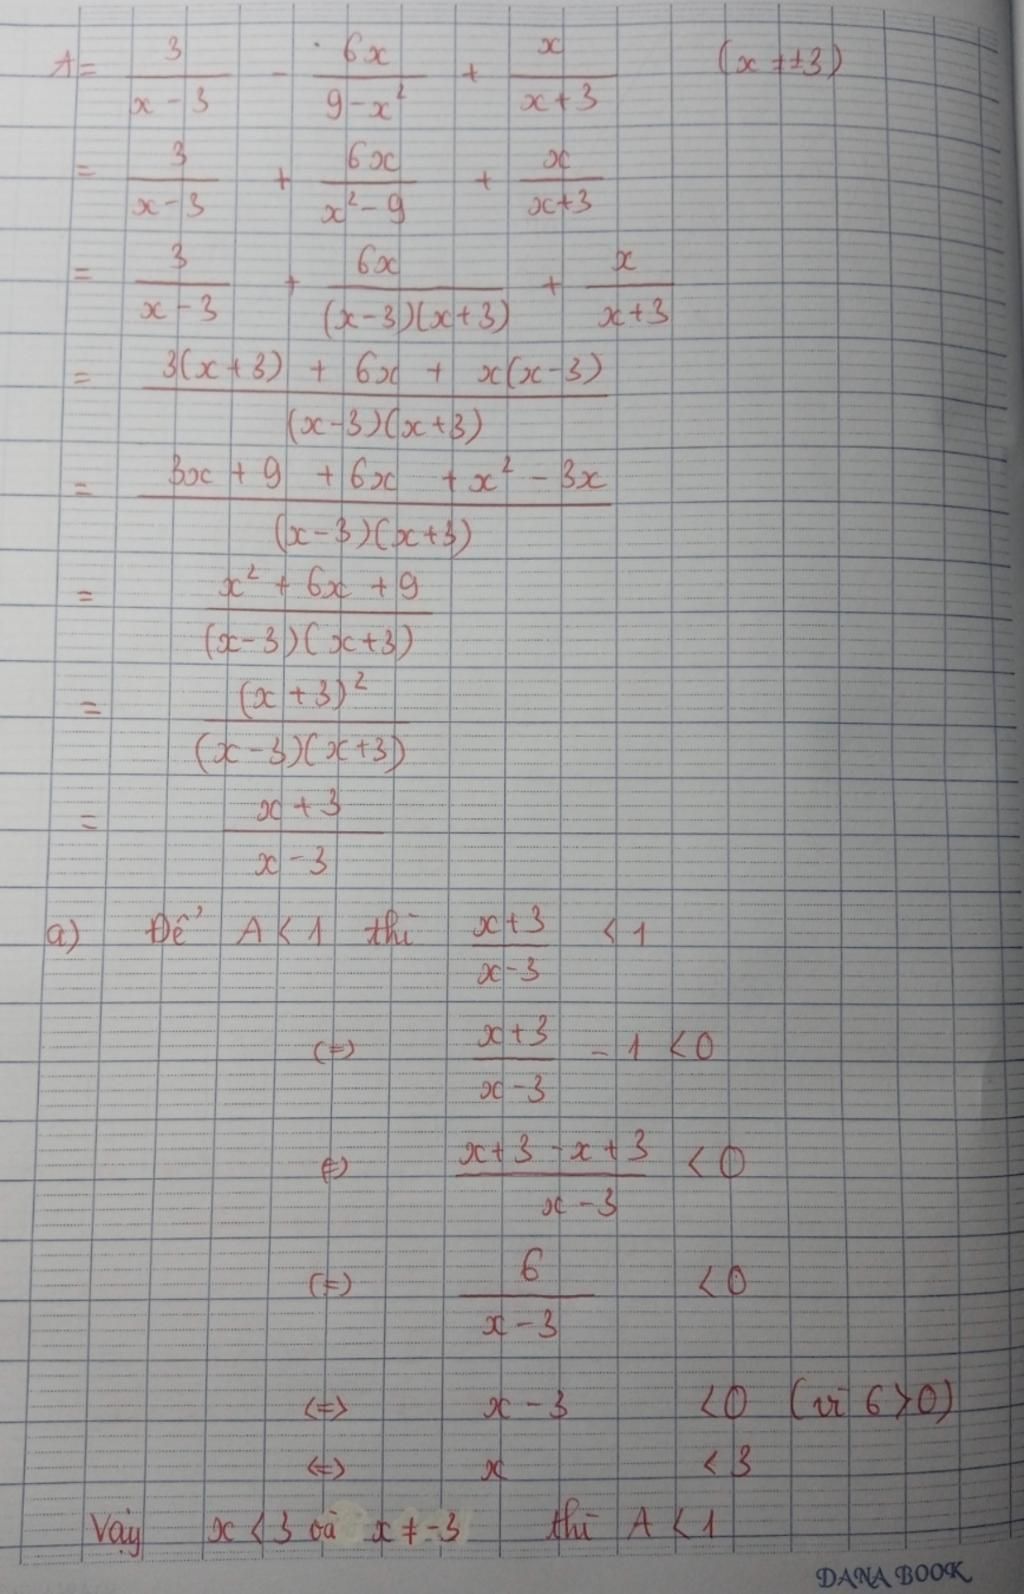 A = 3/(x - 3) - 6x/(9 - x²) + x/(x + 3) (x ≠ ±3)
= 3/(x - 3) + 6x/(x² - 9) + x/(x + 3)
= 3/(x - 3) + 6x/((x - 3)(x + 3)) + x/(x + 3)
= (3(x + 3) + 6x + x(x - 3))/((x - 3)(x + 3))
= (3x + 9 + 6x + x² - 3x)/((x - 3)(x + 3))
= (x² + 6x + 9)/((x - 3)(x + 3))
= (x + 3)²/((x - 3)(x + 3))
= (x + 3)/(x - 3)
a) Để A < 1 thì (x + 3)/(x - 3) < 1
(=) (x + 3)/(x - 3) - 1 < 0
(=) (x + 3 - x + 3)/(x - 3) < 0
(=) 6/(x - 3) < 0
<=> x - 3 < 0 (vì 6 > 0)
<=> x < 3
Vậy x < 3 và x ≠ -3 thì A < 1
DANA BOOK